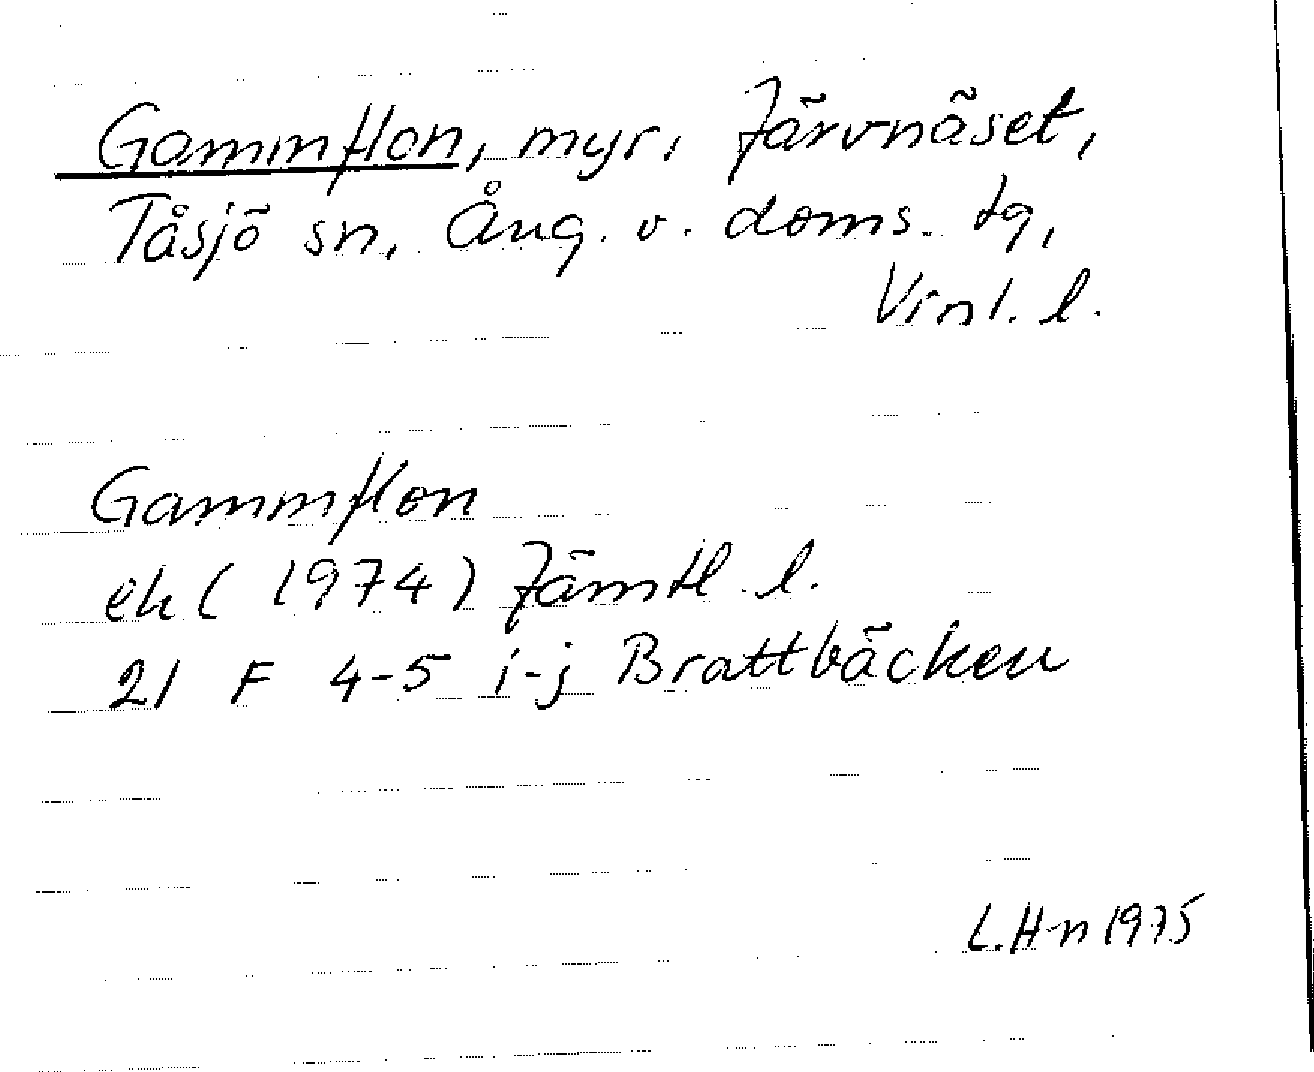 Gammflon, myr, Järvnäset,
Tåsjö sn, Ång. v. doms. tg,
Vtnl. l.
Gammflon
ek (1974) Jämtl l.
21 F 4-5 i-j Brattbäcken
L.H-n 1975